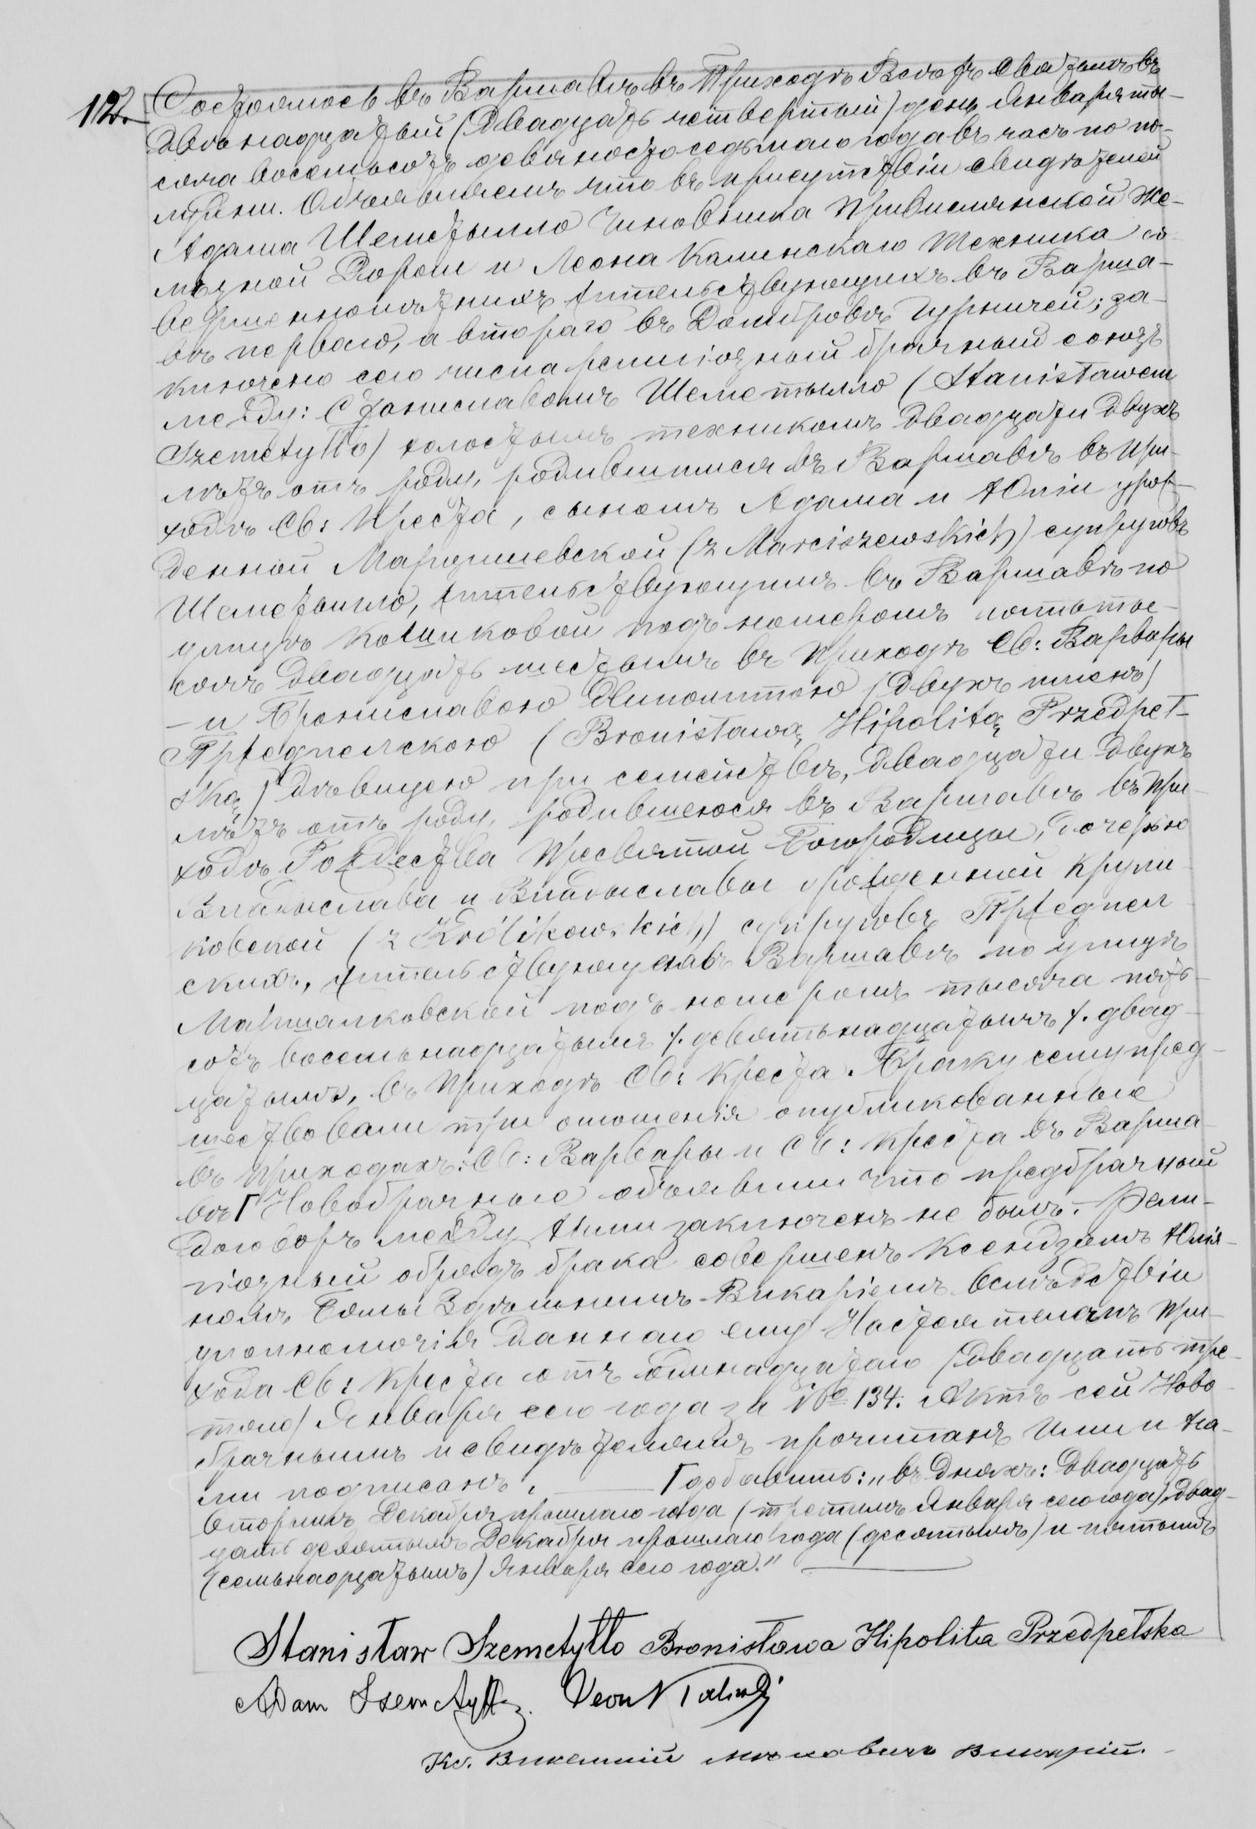 112. Состоялось въ Варшавѣ въ Приходѣ Всѣхъ Святыхъ въ
двѣнадцатый (двадцать четвертый) день Января ты-
сяча восемьсотъ девяносто седьмаго года въ часъ по по-
лудни. Объявляемъ что въ присутствіи свидѣтелей
Адама Шеметылло Чиновника Привислянской Же-
лѣзной Дороги и Леона Калинскаго Техника со-
вершеннолѣтнихъ жительствующихъ въ Варша-
вѣ перваго, а втораго въ Домбровѣ Гурничей; за-
ключено сего числа религіозный брачный союзъ
между: Станиславомъ Шеметылло (Stanisławem
Szemetyłło) холостымъ техникомъ двадцати двухъ
лѣтъ отъ роду, родившимся въ Варшавѣ въ При-
ходѣ Св: Креста, сыномъ Адама и Юліи урож-
денной Марцишевской (z Marciszewskich) супруговъ
Шеметылло, жительствующимъ въ Варшавѣ по
улицѣ под номеромъ
двадцать шестымъ въ Приходѣ Св: Варвары
— и Брониславою Ипполитою (двухъ именъ)
Пржедпелскою (Bronisławą Hipolitą Przedpeł-
ską) дѣвицею при семействѣ, двадцати двухъ
лѣтъ отъ роду, родившеюся въ Варшавѣ въ При-
ходѣ Рождества Пресвятой Богородицы, дочерью
Владыслава и Владыславы урожденной Крули-
ковской (z Królikowskich) супруговъ Пржедпел-
скихъ, жительствующею въ Варшавѣ по улицѣ
Маршалковской подъ номеромъ тысяча пять-
сотъ восемьнадцатымъ /. девятьнадцатымъ /. двад-
цатымъ, въ Приходѣ Св: Креста. Браку сему пред-
шествовали три оглашенія опубликованныя
въ Приходахъ: Св: Варвары и Св: Креста въ Варша-
вѣ Г Новобрачные объявили что предбрачный
договоръ между ними заключенъ не былъ. Рели-
гіозный обрядъ брака совершенъ Ксендзомъ Юлія-
номъ здѣшнимъ Викаріемъ вслѣдствіи
уполномочія даннаго ему Настоятелемъ При-
хода Св: Креста отъ одинадцатаго (двадцать тре-
тяго) Января сего года за № 134. Актъ сей Ново-
брачнымъ и свидѣтелямъ прочитанъ Ими и На-
ми подписанъ. Г добавить: „въ дняхъ: двадцать
вторымъ Декабря прошлаго года (третьимъ Января сего года) двад-
цать девятымъ Декабря прошлаго года (десятымъ) и пятымъ
(семьнадцатымъ) Января сего года."
Stanisław Szemetyłło Bronisława Hipolita Przedpełska
Adam Szemetyłło. Leon Kaliński
Кс. Викентій Викарій.